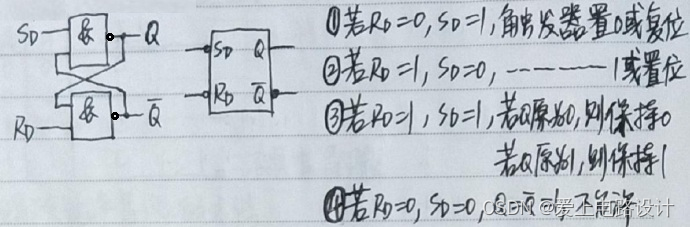 S_D & Q
& Q̅
R_D
S_D Q
R_D Q̅
①若R_D=0, S_D=1, 触发器置0或复位
②若R_D=1, S_D=0, ------- 1或置位
③若R_D=1, S_D=1, 若Q原为0, 则保持0
若Q原为1, 则保持1
④若R_D=0, S_D=0, Q=Q̅=1, 不允许
CSDN @爱上电路设计